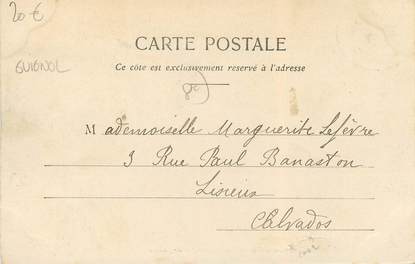 20 €
CARTE POSTALE
GUIGNOL
Ce côté est exclusivement reservé à l'adresse
Mademoiselle Marguerite Lefèvre
3 Rue Paul Banaston
Lisieux
Calvados